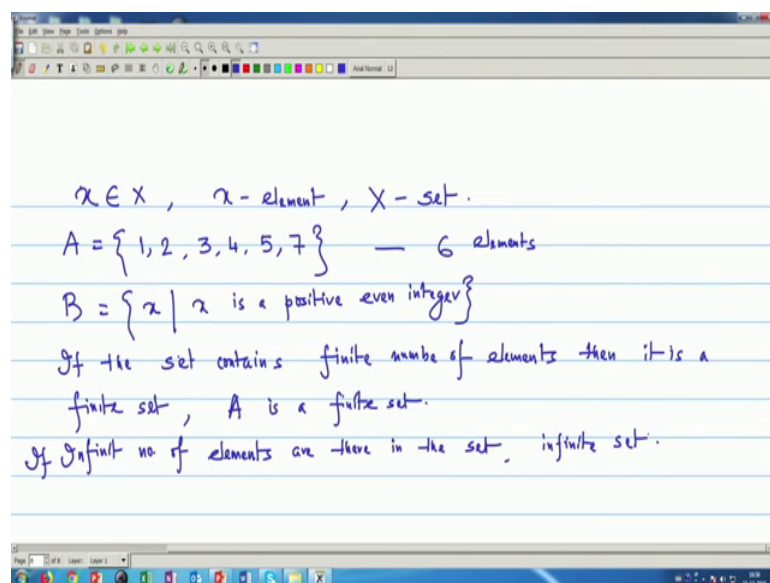 Journal
File Edit View Page Tools Options Help
Arial Normal 12
x ∈ X , x - element , X - set .
A = { 1, 2, 3, 4, 5, 7 } — 6 elements
B = { x | x is a positive even integer }
If the set contains finite numbe of elements then it is a
finite set , A is a finite set .
If Infinit no. of elements are there in the set . infinite set .
Page 8 of 8 Layer: Layer 1